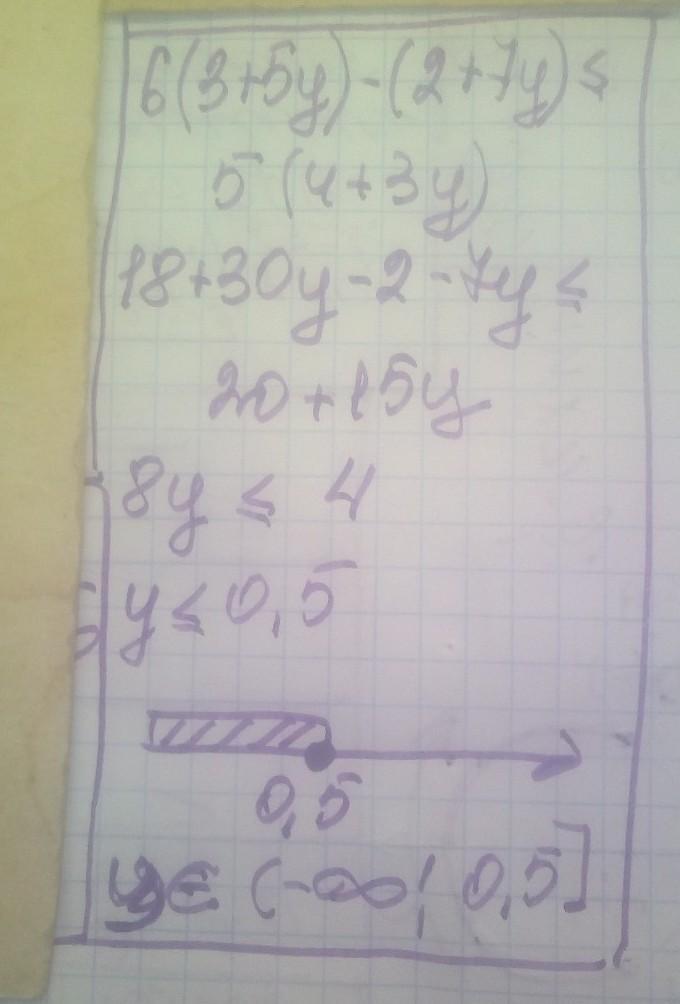 6(3+5y)-(2+7y)≤
5(4+3y)
18+30y-2-7y≤
20+15y
8y ≤ 4
y ≤ 0,5
0,5
y∈ (-∞; 0,5]